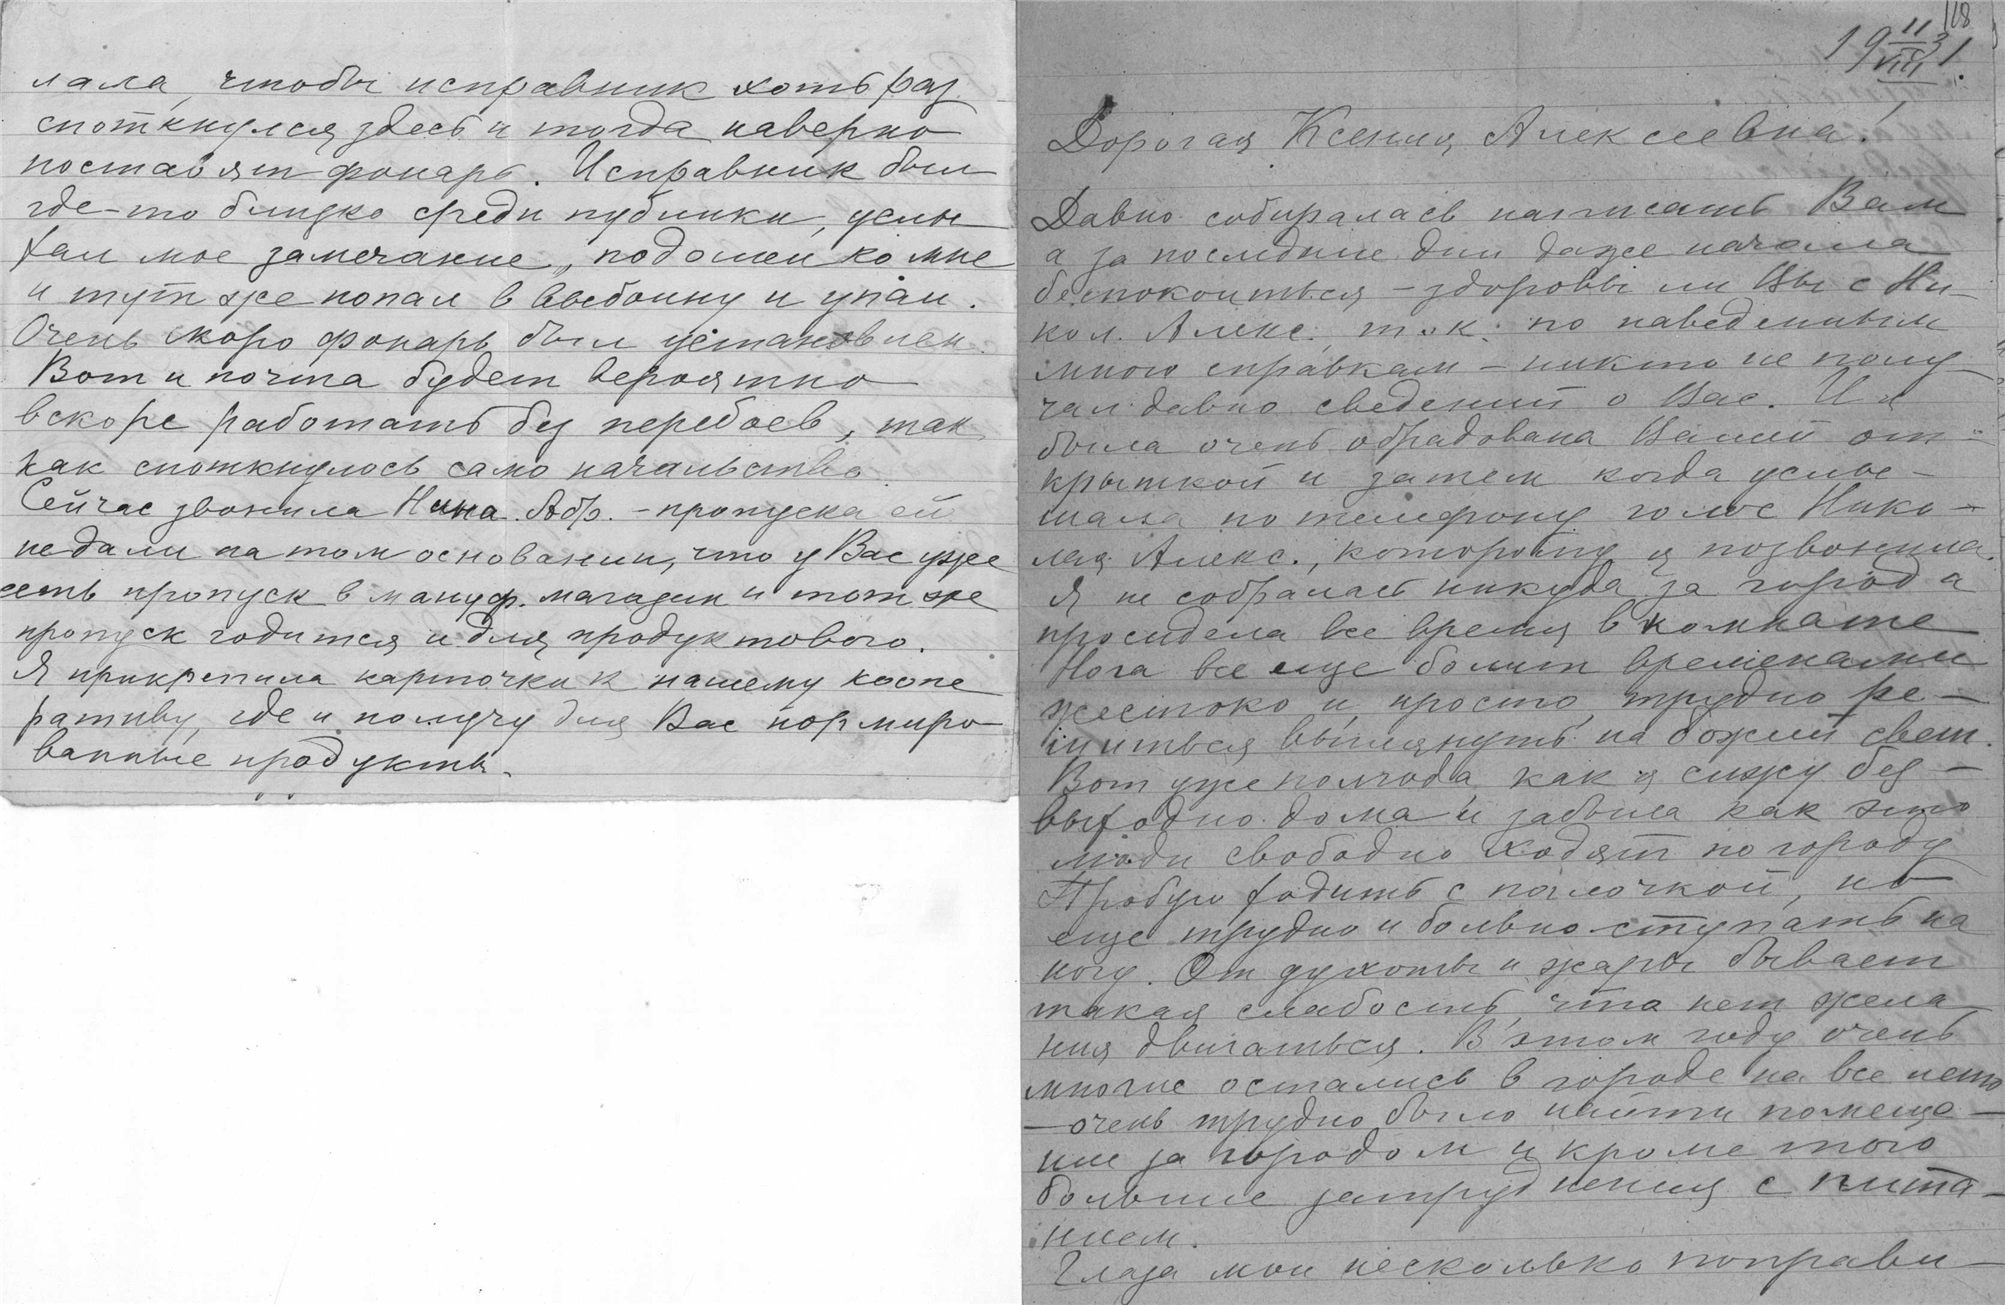 лала, чтобы исправник хоть раз
споткнулся здесь и тогда наверно
поставят фонарь. Исправник был
где-то близко среди публики, услы
хал мое замечание, подошел ко мне
и тут же попал в выбоину и упал.
Очень скоро фонарь был установлен.
Вот и почта будет вероятно
вскоре работать без перебоев, так
как споткнулось само начальство.
Сейчас звонила Нина Абр. - пропуска ей
не дали на том основании, что у Вас уже
есть пропуск в мануф. магазин и тот же
пропуск годится и для продуктового.
Я прикрепила карточки к нашему коопе
ративу, где и получу для Вас нормиро
ванные продукты.
118
19 11/VIII 31.
Дорогая Ксения Алексеевна!
Давно собиралась написать Вам
а за последние дни даже начала
беспокоиться - здоровы ли Вы с Ни-
кол. Алекс., т.к. по наведенным
мною справкам - никто не полу-
чал давно сведений о Вас. И я
была очень обрадована Вашей от-
крыткой и затем когда услы-
шала по телефону голос Нико-
лая Алекс., которому я позвонила.
Я не собралась никуда за город а
просидела все время в комнате
Нога все еще болит временами
жестоко и просто трудно ре-
шиться выглянуть на божий свет.
Вот уже полгода как я сижу без-
выходно дома и забыла как это
люди свободно ходят по городу
Пробую ходить с палочкой, но
еще трудно и больно ступать на
ногу. От духоты и жары бывает
такая слабость, что нет жела
ния двигаться. В этом году очень
многие остались в городе на все лето
- очень трудно было найти помеще-
ние за городом и кроме того
большие затруднения с пита-
нием.
Глаза мои несколько поправи-